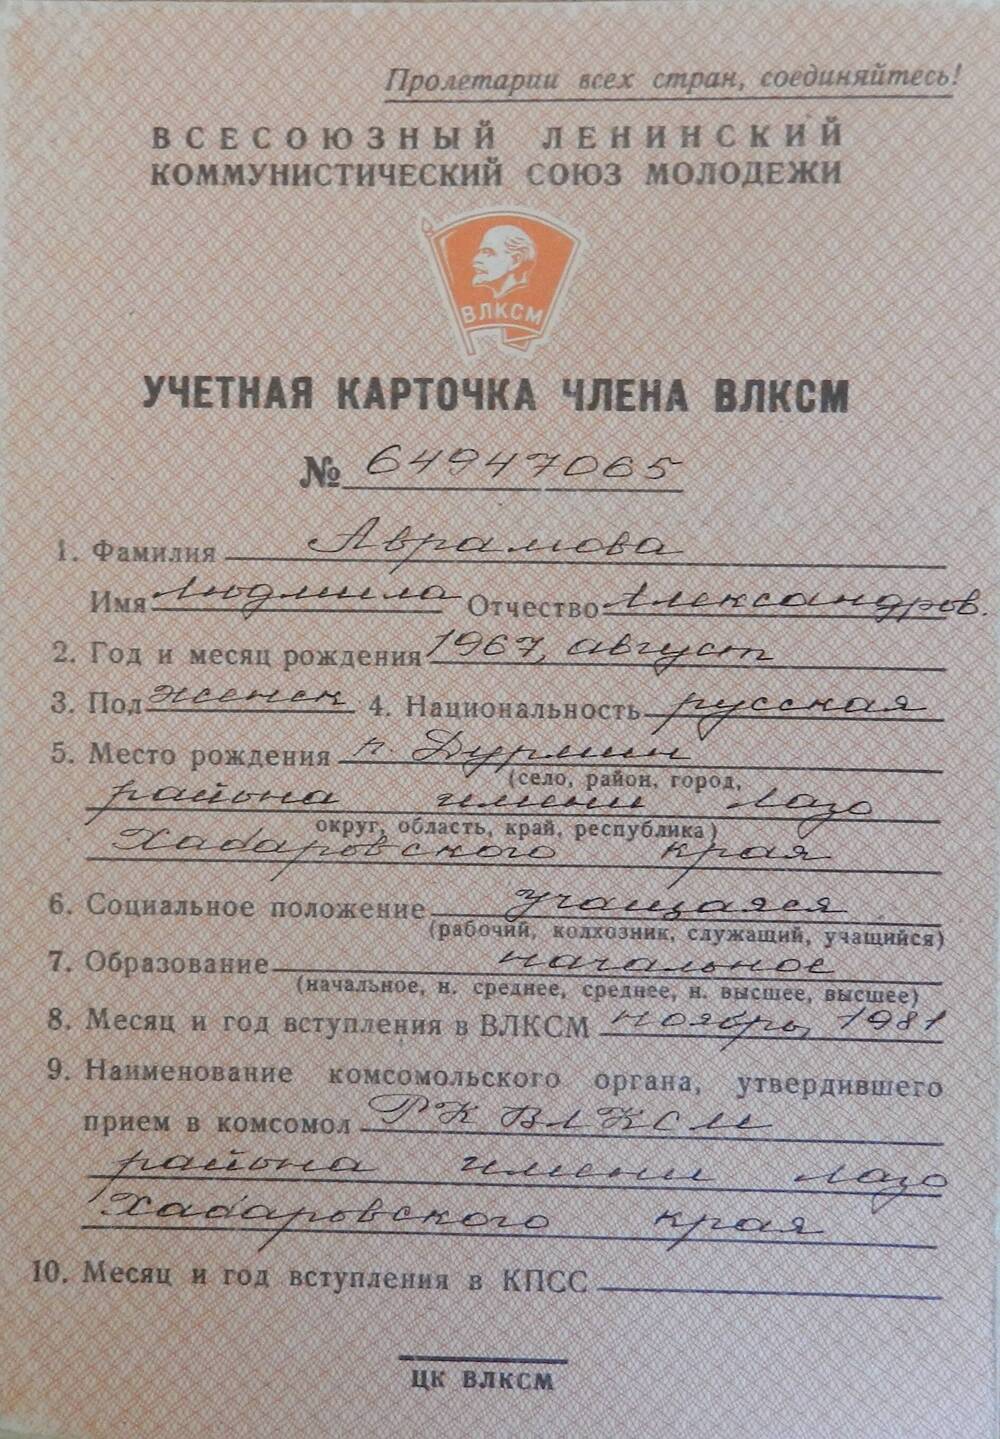 Пролетарии всех стран, соединяйтесь!
ВСЕСОЮЗНЫЙ ЛЕНИНСКИЙ
КОММУНИСТИЧЕСКИЙ СОЮЗ МОЛОДЕЖИ
ВЛКСМ
УЧЕТНАЯ КАРТОЧКА ЧЛЕНА ВЛКСМ
№ 64947065
1. Фамилия Аврамова
Имя Людмила Отчество Александров.
2. Год и месяц рождения 1967, август
3. Пол женск 4. Национальность русская
5. Место рождения п. Дурмин
(село, район, город,
района имени Лазо
округ, область, край, республика)
Хабаровского края
6. Социальное положение учащаяся
(рабочий, колхозник, служащий, учащийся)
7. Образование начальное
(начальное, н. среднее, среднее, н. высшее, высшее)
8. Месяц и год вступления в ВЛКСМ ноябрь, 1981
9. Наименование комсомольского органа, утвердившего
прием в комсомол РК ВЛКСМ
района имени Лазо
Хабаровского края
10. Месяц и год вступления в КПСС
ЦК ВЛКСМ